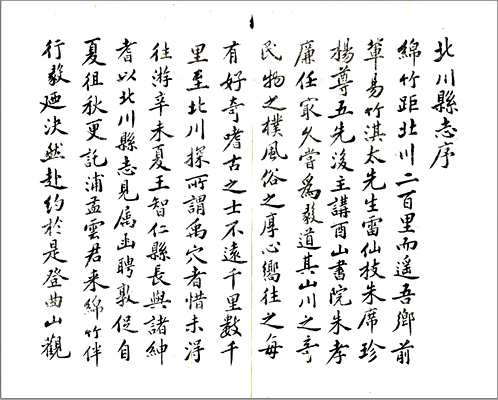 北川縣志序
綿竹距北川二百里而遥吾鄉前
輩易竹淇太先生雷仙枝朱席珍
楊尊五先後主講酉山書院朱孝
廉任家久嘗爲敦道其山川之奇
民物之樸風俗之厚心嚮往之每
有好奇嗜古之士不遠千里數千
里至北川探所謂禹穴者惜未得
往游辛未夏王智仁縣長與諸紳
耆以北川縣志見属函聘敦促自
夏徂秋更託浦孟雲君来綿竹伴
行敦廼决然赴約於是登曲山觀